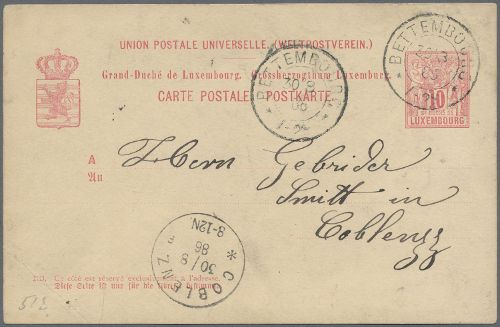 UNION POSTALE UNIVERSELLE. (WELTPOSTVEREIN.)
Grand-Duché de Luxembourg. Grossherzogthum Luxemburg.
CARTE POSTALE POSTKARTE.
BETTEMBOURG
30 8
86
BETTEMBOURG
86
10
LUXEMBOURG
A
An
Herrn Gebrider
Smitt in
Coblenz
COBLENZ
30/8
86
8-12N.
Ce côté est réservé exclusivement à l'adresse.
Diese Seite ist nur für die Adresse bestimmt.